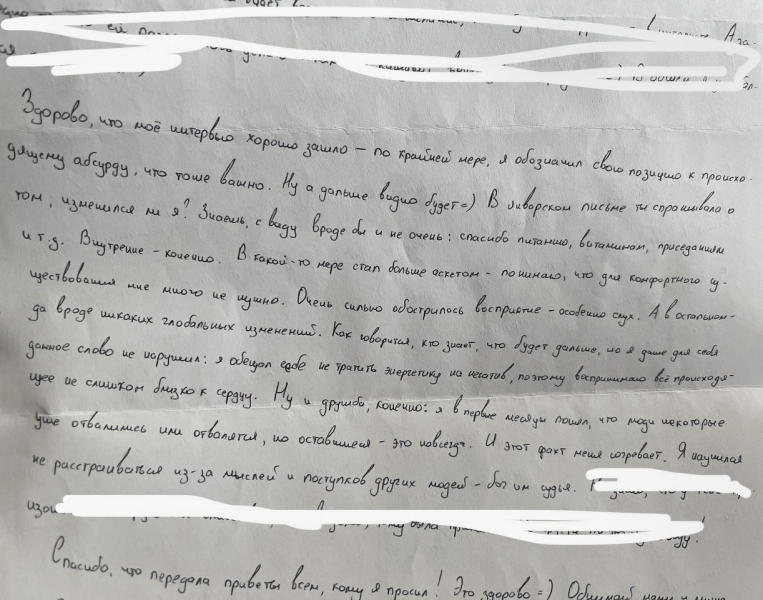 Здорово, что моё интервью хорошо зашло – по крайней мере, я обозначил свою позицию к происхо-
дящему абсурду, что тоже важно. Ну а дальше видно будет =) В январском письме ты спрашивала о
том, изменился ли я? Знаешь, с виду вроде бы и не очень: спасибо питанию, витаминам, приседаниям
и т.д. Внутренне – конечно. В какой-то мере стал больше аскетом – понимаю, что для комфортного су-
ществования мне много не нужно. Очень сильно обострилось восприятие – особенно слух. А в остальном –
да вроде никаких глобальных изменений. Как говорится, кто знает, что будет дальше, но я даже для себя
данное слово не нарушил: я обещал себе не тратить энергетику на негатив, поэтому воспринимаю всё происходя-
щее не слишком близко к сердцу. Ну и дружба, конечно: я в первые месяцы понял, что люди некоторые
уже отвалились или отвалятся, но оставшиеся – это навсегда. И этот факт меня согревает. Я научился
не расстраиваться из-за мыслей и поступков других людей – бог им судья.
Спасибо, что передала приветы всем, кому я просил! Это здорово =) Обнимай маму и